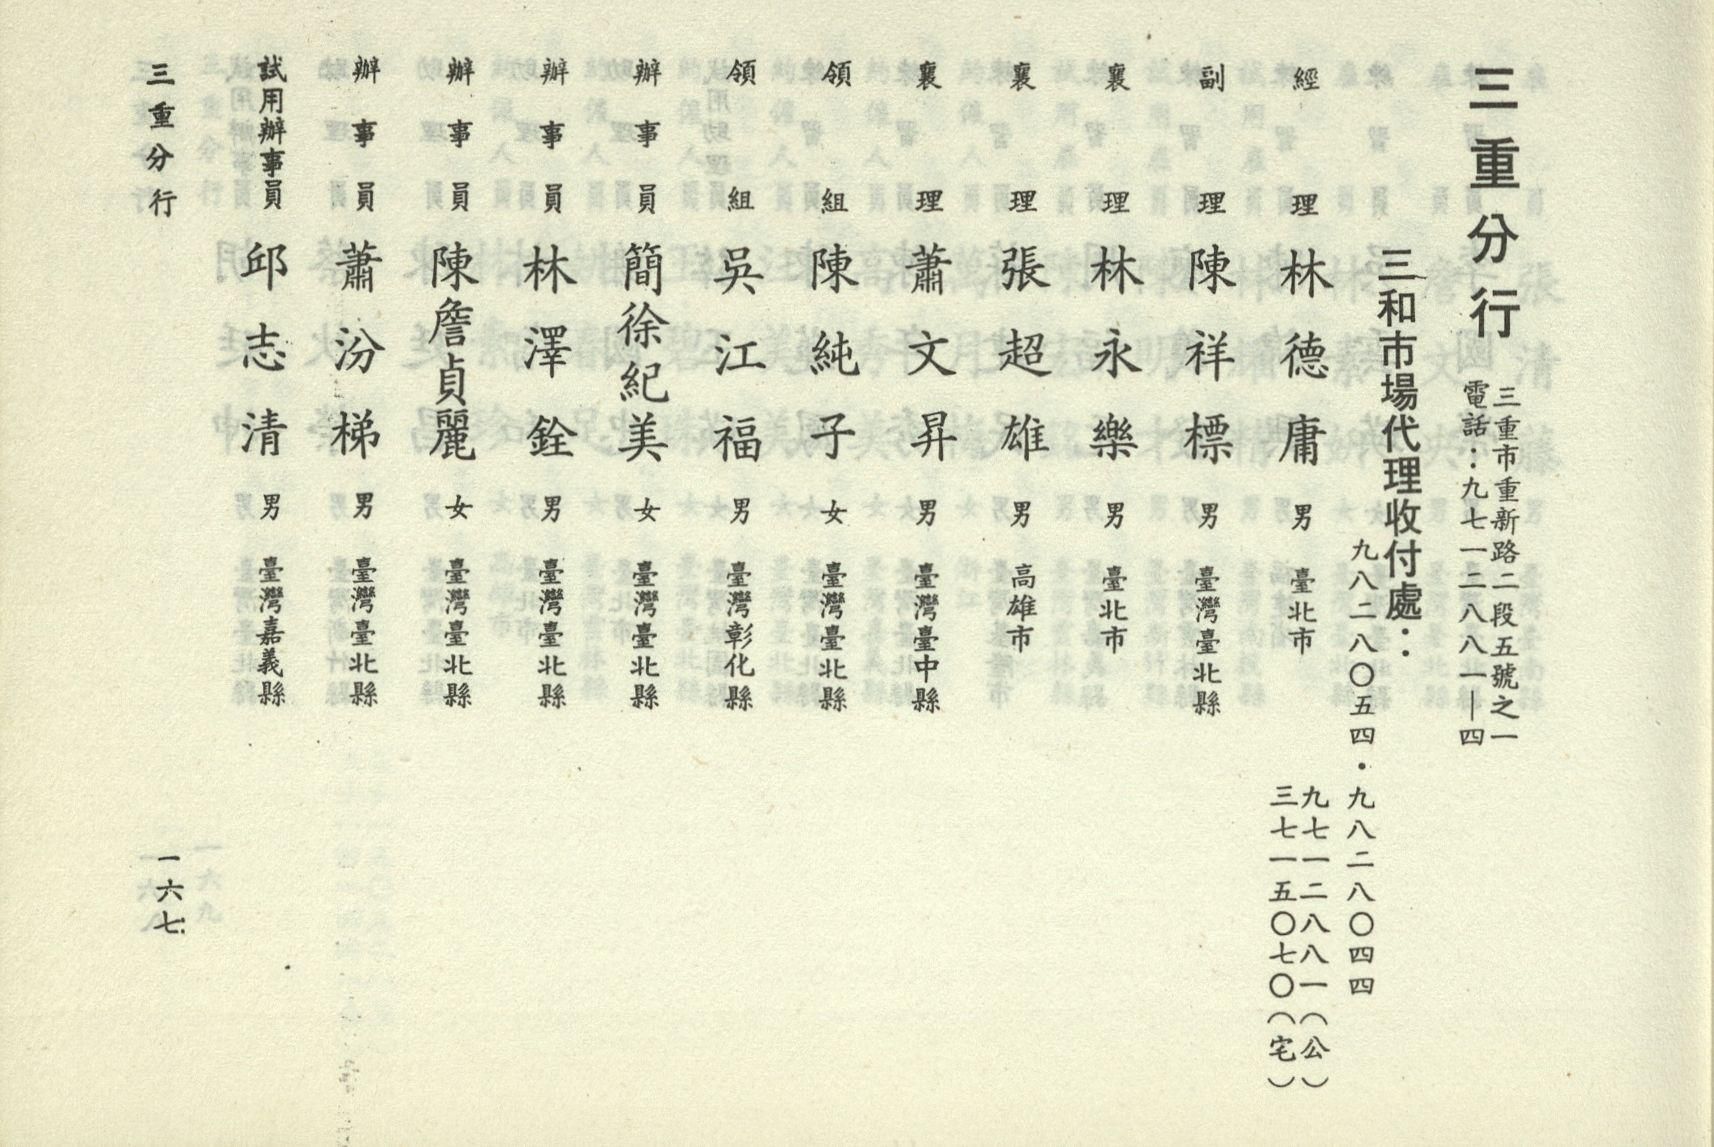 三重分行
三重市重新路二段五號之一
電話：九七一二八八一—四
三和市場代理收付處：
九八二八〇五四・九八二八〇四四
經理 林德庸 男 臺北市 九七一二八八一（公）
三七一五〇七〇（宅）
副理 陳祥標 男 臺灣臺北縣
襄理 林永樂 男 臺北市
襄理 張超雄 男 高雄市
襄理 蕭文昇 男 臺灣臺中縣
領組 陳純子 女 臺灣臺北縣
領組 吳江福 男 臺灣彰化縣
辦事員 簡徐紀美 女 臺灣臺北縣
辦事員 林澤銓 男 臺灣臺北縣
辦事員 陳詹貞麗 女 臺灣臺北縣
辦事員 蕭汾梯 男 臺灣臺北縣
試用辦事員 邱志清 男 臺灣嘉義縣
三重分行
一六七